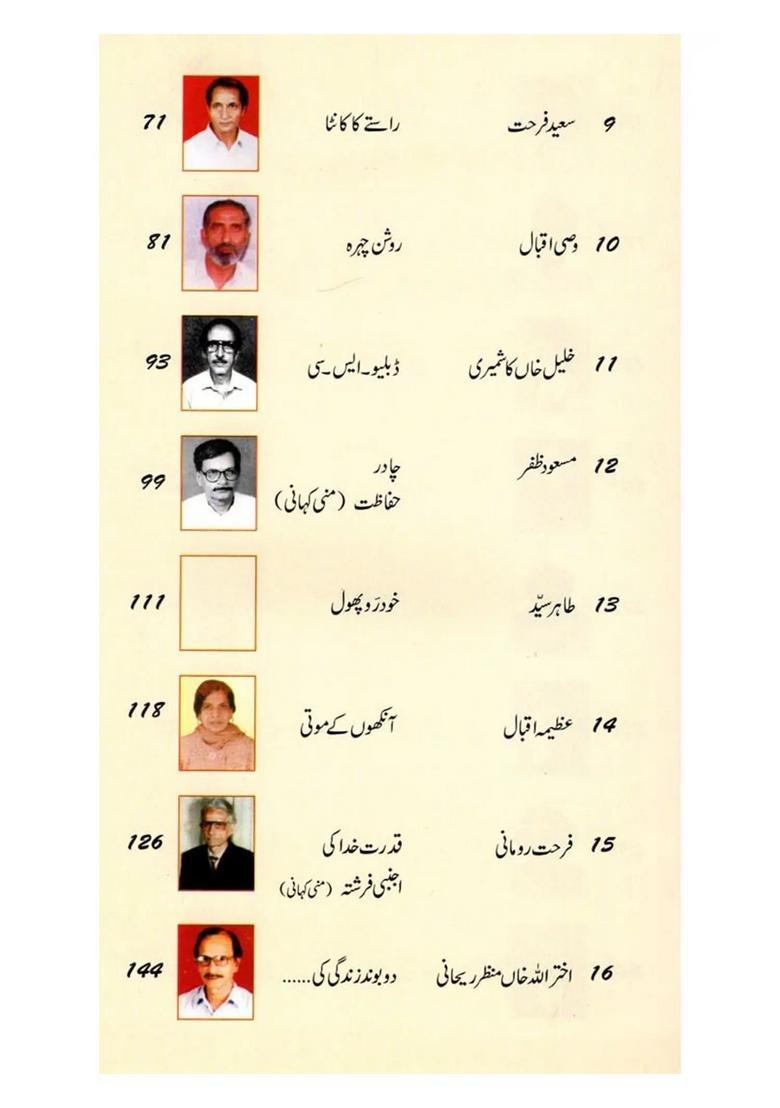 9 سعید فرحت راستے کا کانٹا 71
10 وصی اقبال روشن چہرہ 81
11 خلیل خاں کاشمیری ڈبلیو۔ایس۔سی 93
12 مسعود ظفر چادر 99
حفاظت (منی کہانی)
13 طاہر سیّد خودرَو پھول 111
14 عظیمہ اقبال آنکھوں کے موتی 118
15 فرحت رومانی قدرت خدا کی 126
اجنبی فرشتہ (منی کہانی)
16 اختر اللہ خاں منظر ریحانی دو بوند زندگی کی...... 144